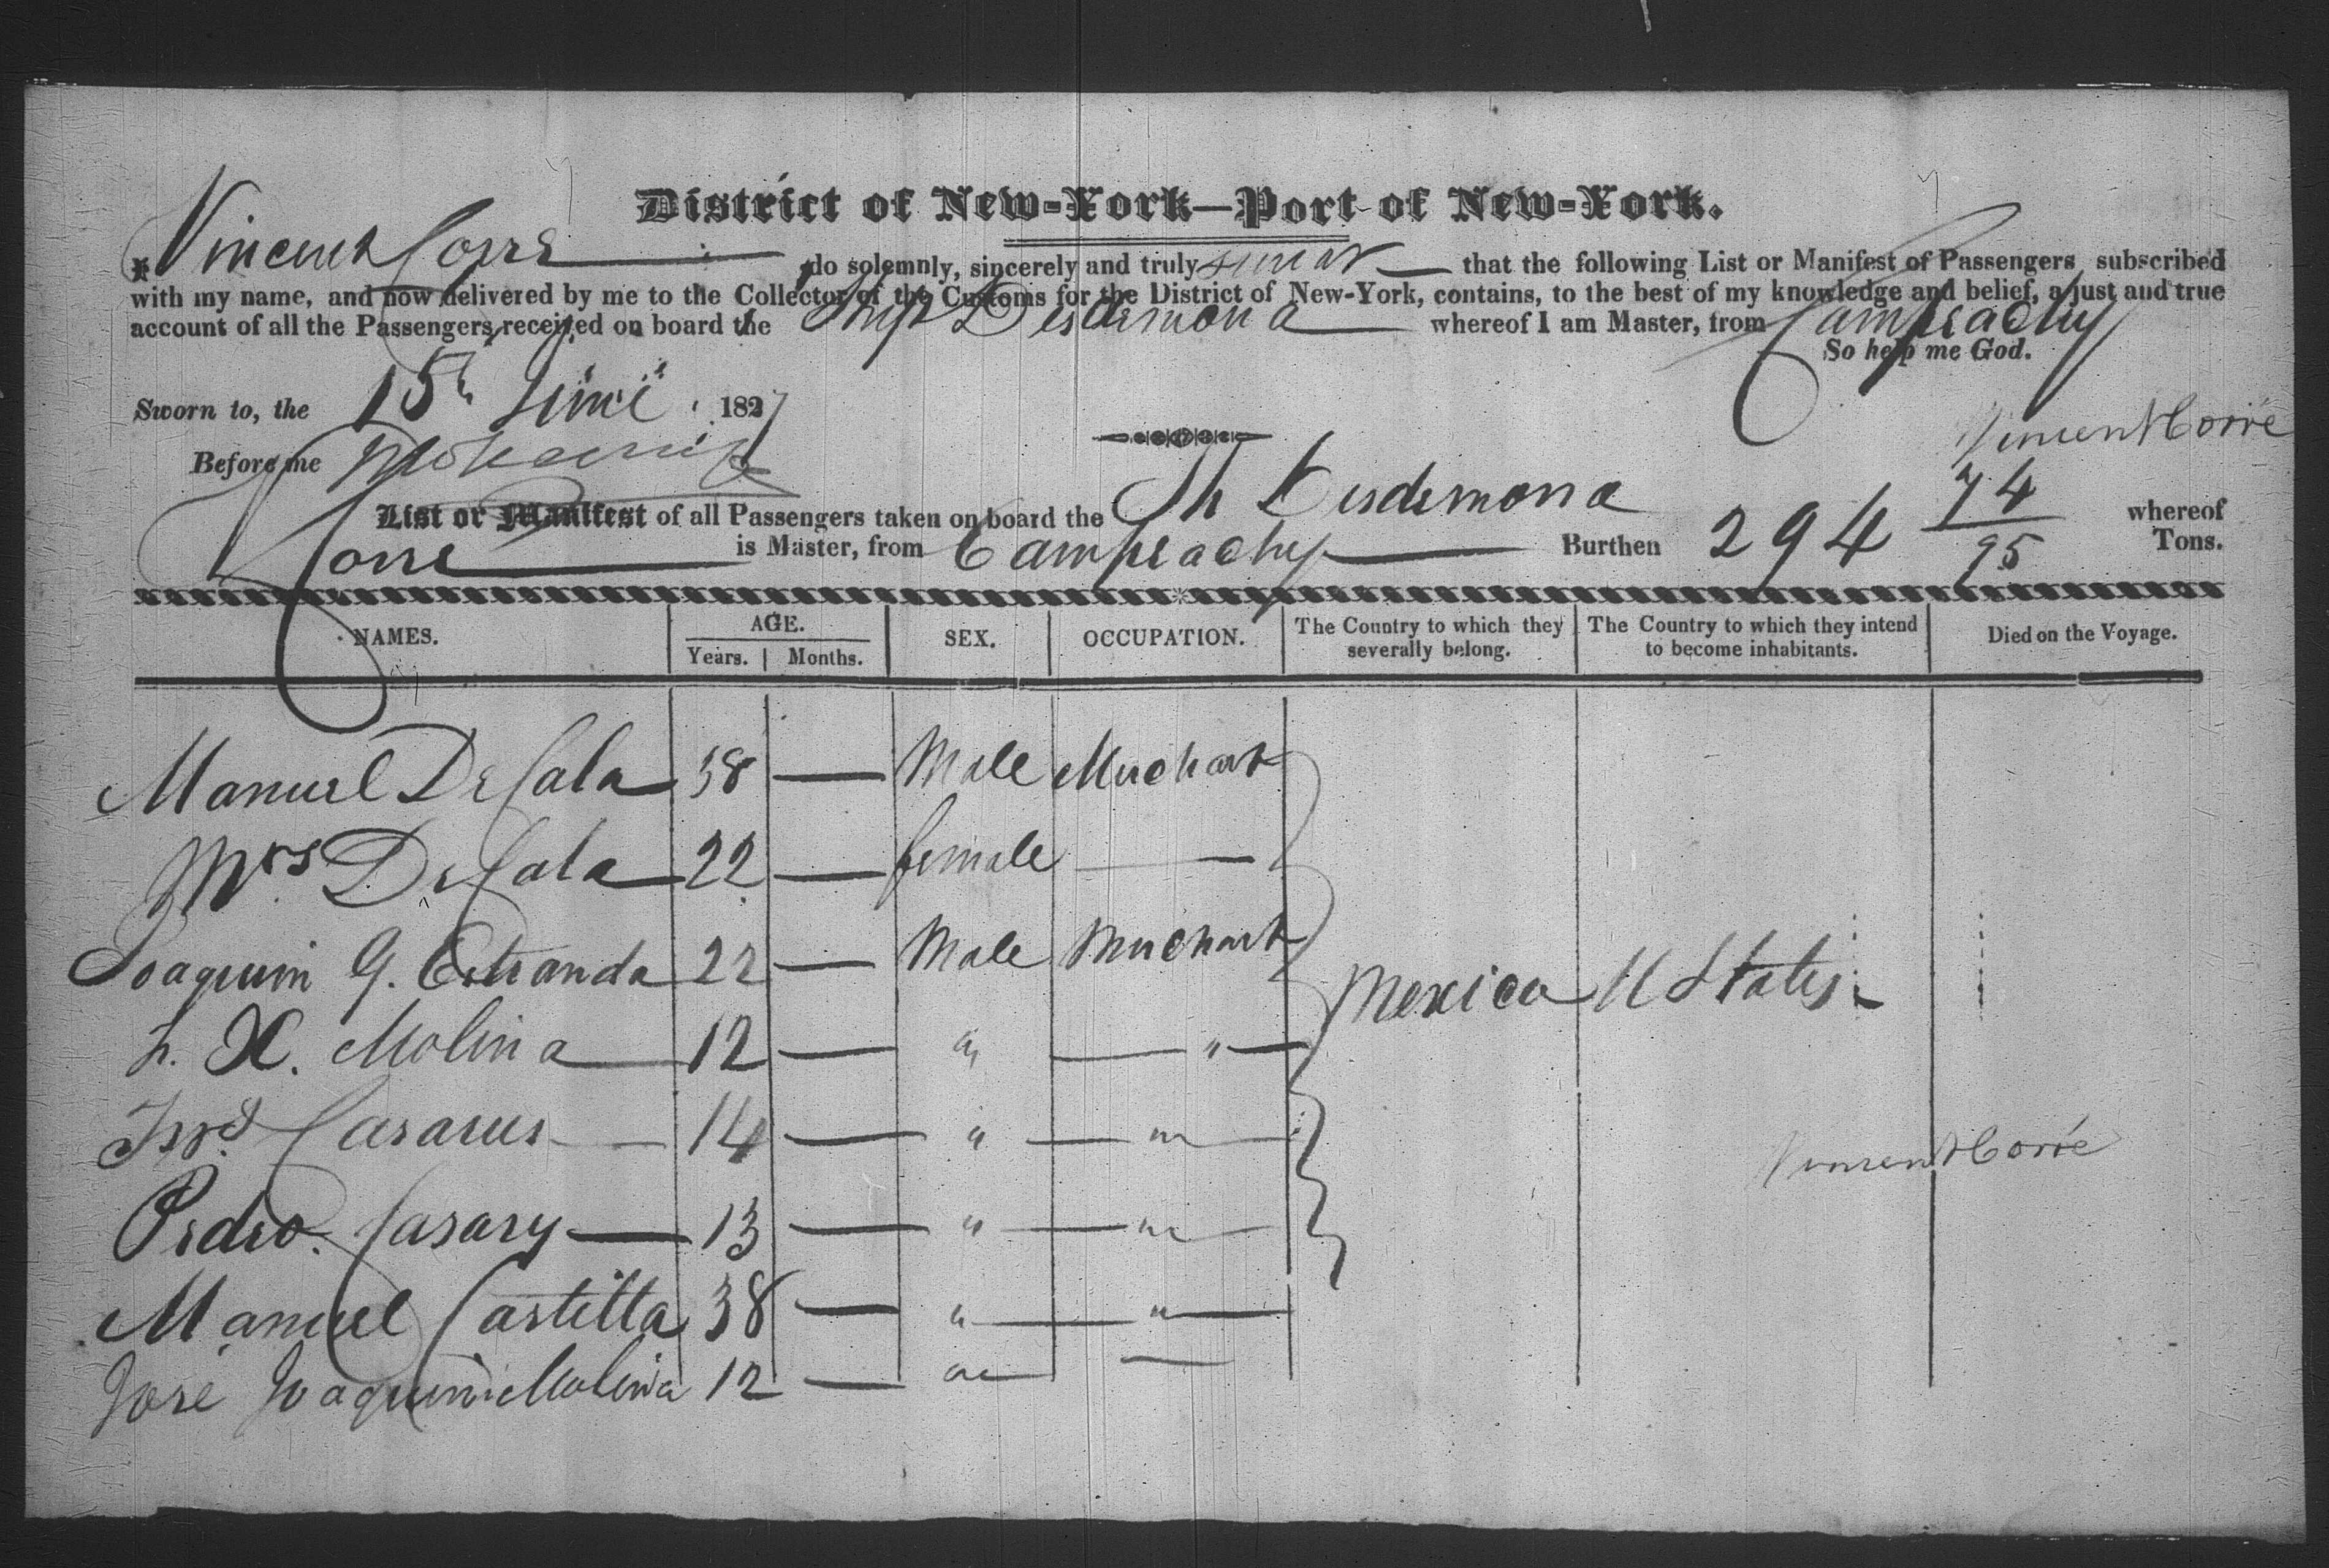 District of New-York—Port of New-York.
I Vincent Corre do solemnly, sincerely and truly swear that the following List or Manifest of Passengers subscribed
with my name, and now delivered by me to the Collector of the Customs for the District of New-York, contains, to the best of my knowledge and belief, a just and true
account of all the Passengers received on board the Ship Desdemona whereof I am Master, from Campeachy
So help me God.
Sworn to, the 15th June 1827
Vincent Corré
Before me
List or Manifest of all Passengers taken on board the Sh Desdemona whereof
Corre is Master, from Campeachy Burthen 294 74/95 Tons.
NAMES. AGE. Years. Months. SEX. OCCUPATION. The Country to which they severally belong. The Country to which they intend to become inhabitants. Died on the Voyage.
Manuel De Cala 38 — Male Merchant
Mrs De Cala 22 — female —
Joaquim G. Estranda 22 — Male Merchant
Mexico U States
L. X. Molina 12 — " — " —
Casarus — 14 — " — " —
Vincent Corré
Pedro Casary — 13 — " — " —
Manuel Castilla 38 — " — " —
José Joaquin Molina 12 — " —